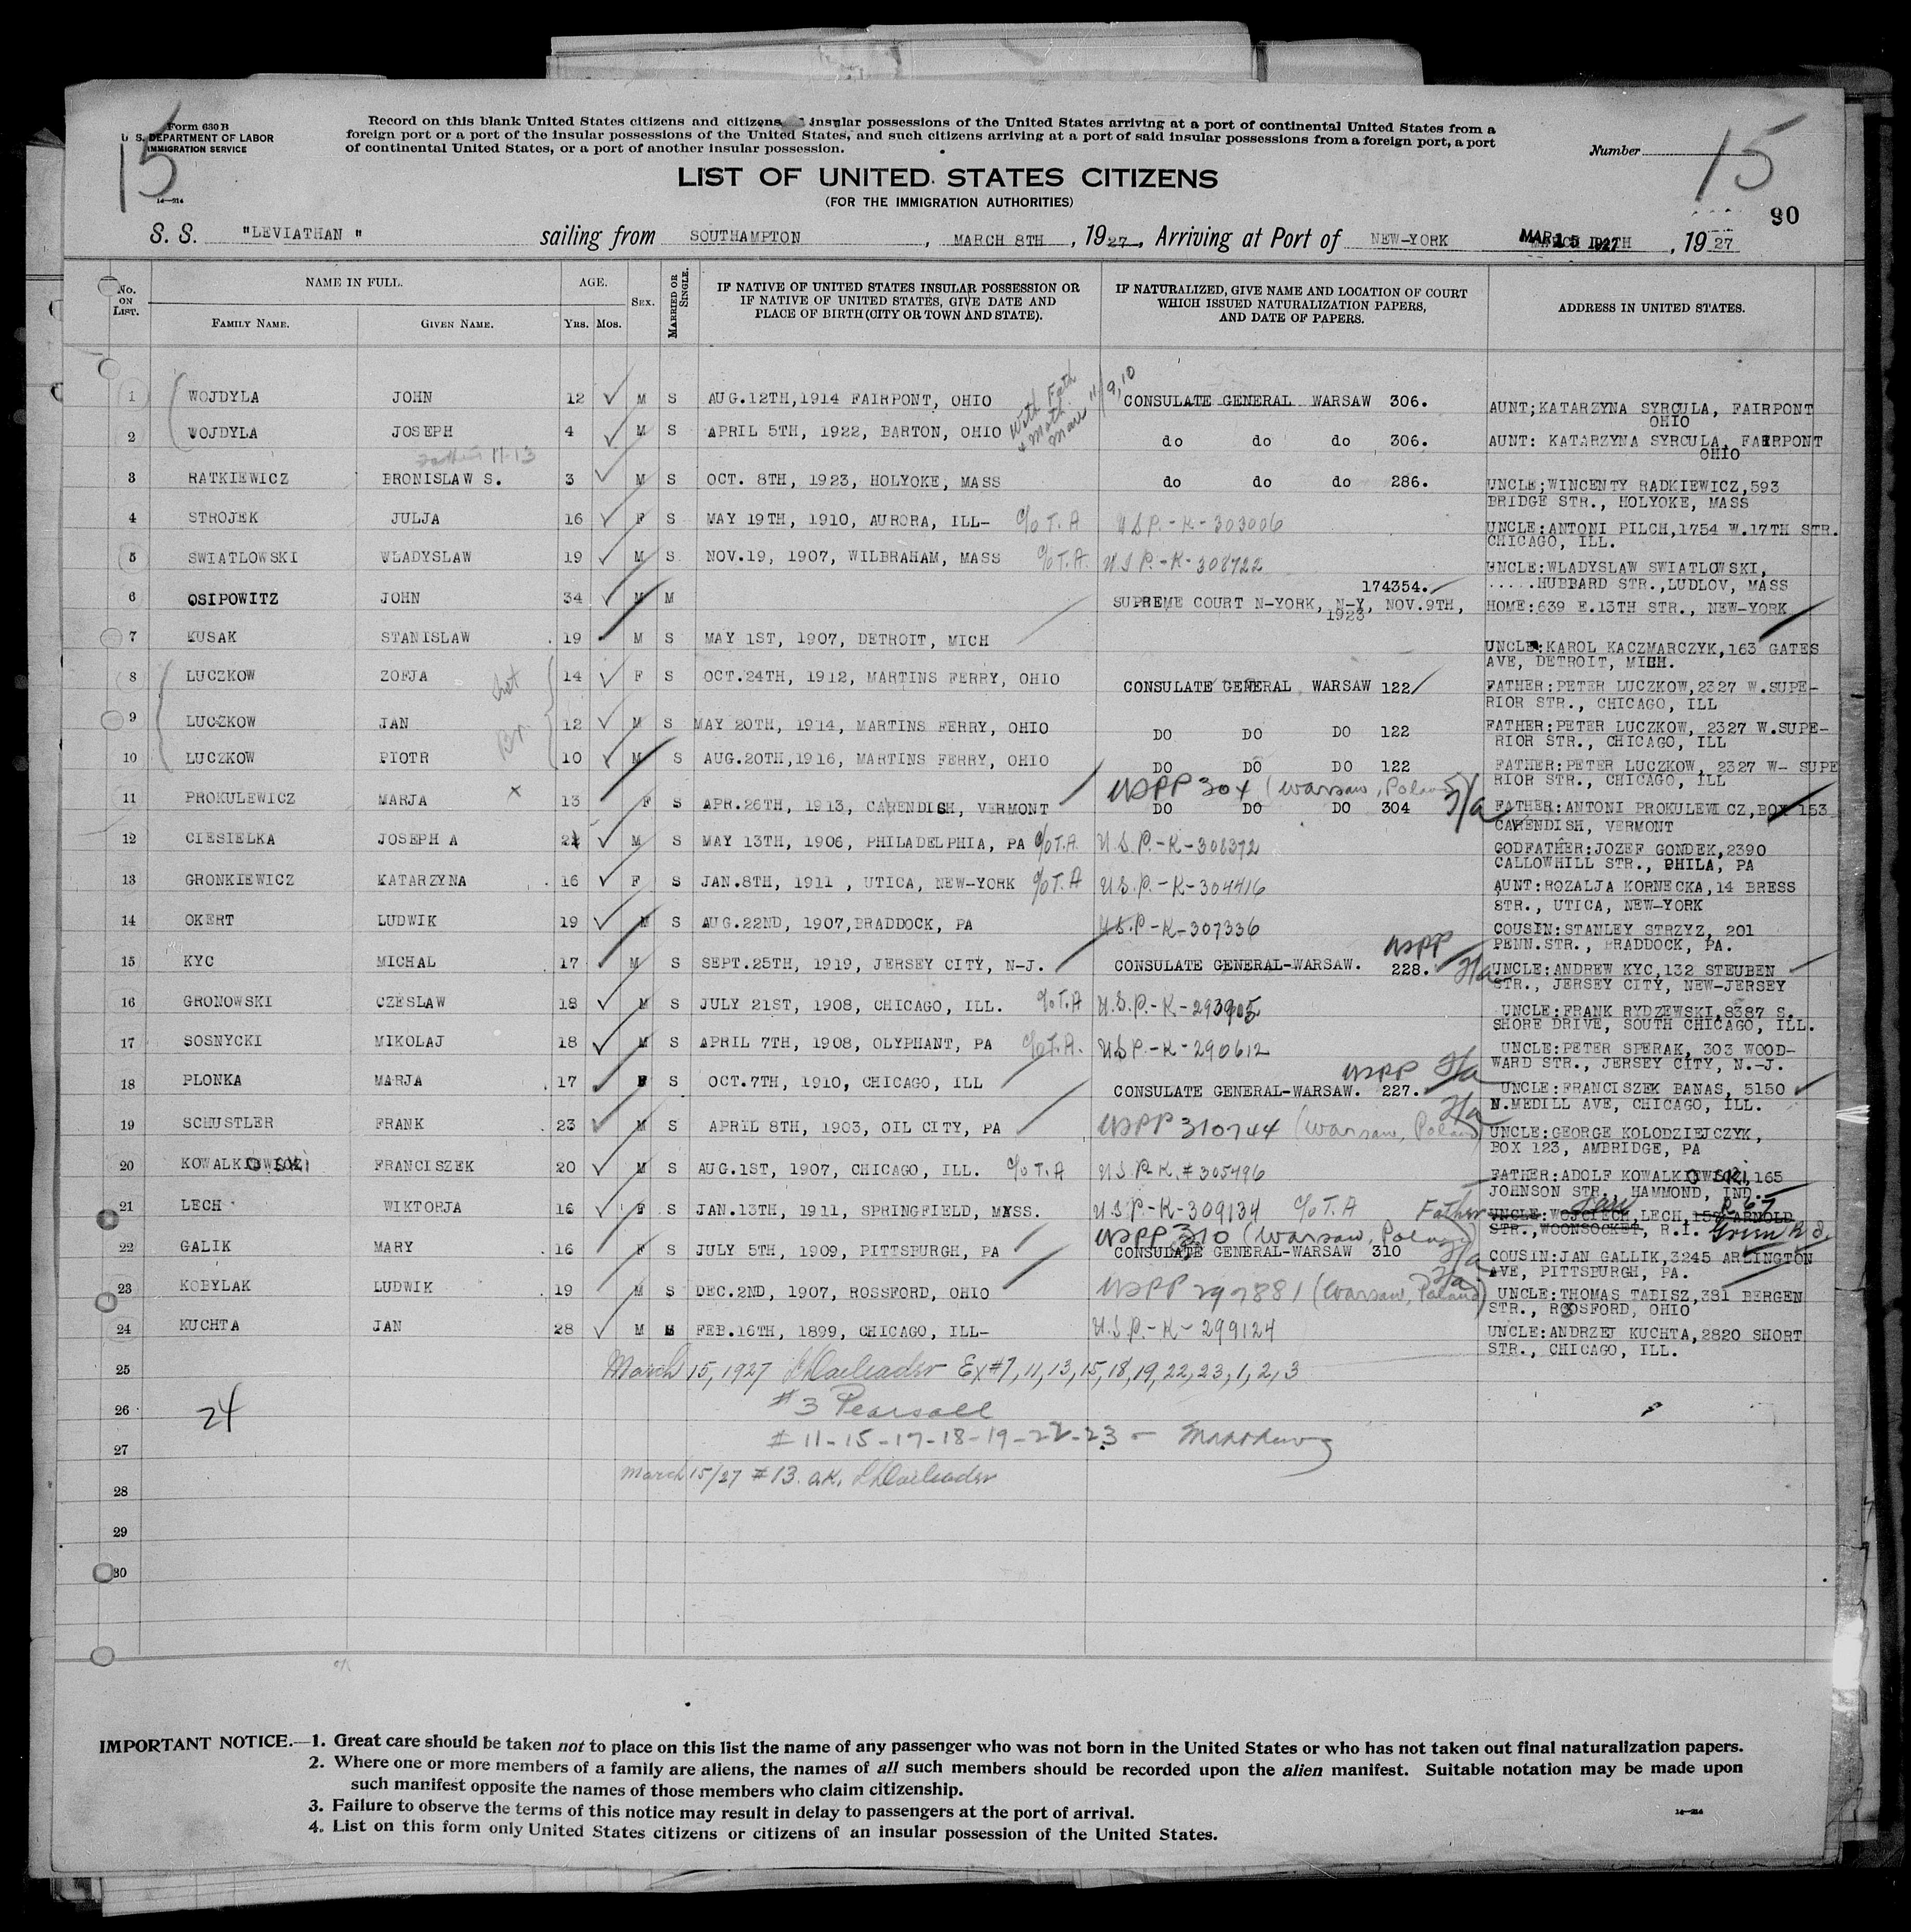 15
Form 630 B
U. S. DEPARTMENT OF LABOR
IMMIGRATION SERVICE
14—214
Record on this blank United States citizens and citizens insular possessions of the United States arriving at a port of continental United States from a
foreign port or a port of the insular possessions of the United States, and such citizens arriving at a port of said insular possessions from a foreign port, a port
of continental United States, or a port of another insular possession.
Number 15
LIST OF UNITED STATES CITIZENS
(FOR THE IMMIGRATION AUTHORITIES)
90
S. S. "LEVIATHAN " sailing from SOUTHAMPTON, MARCH 8TH, 1927, Arriving at Port of NEW-YORK MAR 15 1927, 1927
No. ON LIST. NAME IN FULL. AGE. SEX. MARRIED OR SINGLE. IF NATIVE OF UNITED STATES INSULAR POSSESSION OR IF NATIVE OF UNITED STATES, GIVE DATE AND PLACE OF BIRTH (CITY OR TOWN AND STATE). IF NATURALIZED, GIVE NAME AND LOCATION OF COURT WHICH ISSUED NATURALIZATION PAPERS, AND DATE OF PAPERS. ADDRESS IN UNITED STATES.
FAMILY NAME. GIVEN NAME. YRS. MOS.
With Fath
& Moth
11/9,10
1 WOJDYLA JOHN 12 M S AUG.12TH,1914 FAIRPONT, OHIO CONSULATE GENERAL WARSAW 306. AUNT;KATARZYNA SYRCULA, FAIRPONT
OHIO
2 WOJDYLA JOSEPH 4 M S APRIL 5TH, 1922, BARTON, OHIO do do do 306. AUNT: KATARZYNA SYRCULA, FAIRPONT
OHIO
11-13
3 RATKIEWICZ BRONISLAW S. 3 M S OCT. 8TH, 1923, HOLYOKE, MASS do do do 286. UNCLE;WINCENTY RADKIEWICZ,593
BRIDGE STR., HOLYOKE, MASS
4 STROJEK JULJA 16 F S MAY 19TH, 1910, AURORA, ILL- c/o T.A U.S.P.-K-303006 UNCLE:ANTONI PILCH,1754 W.17TH STR.
CHICAGO, ILL.
5 SWIATLOWSKI WLADYSLAW 19 M S NOV.19, 1907, WILBRAHAM, MASS c/o T.A. U.S.P.-K-308722 UNCLE:WLADYSLAW SWIATLOWSKI,
.....HUBBARD STR.,LUDLOV, MASS
174354.
6 OSIPOWITZ JOHN 34 M M SUPREME COURT N-YORK, N-Y, NOV.9TH, HOME:639 E.13TH STR., NEW-YORK
1923
7 KUSAK STANISLAW 19 M S MAY 1ST, 1907, DETROIT, MICH UNCLE:KAROL KACZMARCZYK,163 GATES
AVE, DETROIT, MICH.
8 LUCZKOW ZOFJA 14 F S OCT.24TH, 1912, MARTINS FERRY, OHIO CONSULATE GENERAL WARSAW 122 FATHER:PETER LUCZKOW,2327 W.SUPE-
RIOR STR., CHICAGO, ILL
9 LUCZKOW JAN 12 M S MAY 20TH, 1914, MARTINS FERRY, OHIO DO DO DO 122 FATHER:PETER LUCZKOW, 2327 W.SUPE-
RIOR STR., CHICAGO, ILL
10 LUCZKOW PIOTR 10 M S AUG.20TH,1916, MARTINS FERRY, OHIO DO DO DO 122 FATHER:PETER LUCZKOW, 2327 W- SUPE
RIOR STR., CHICAGO, ILL
USPP 304 (Warsaw, Poland)
11 PROKULEWICZ MARJA x 13 F S APR.26TH, 1913, CAVENDISH, VERMONT DO DO DO 304 FATHER:ANTONI PROKULEWICZ,BOX 153
CAVENDISH, VERMONT
12 CIESIELKA JOSEPH A M S MAY 13TH, 1906, PHILADELPHIA, PA c/o T.A. U.S.P.-K-308372 GODFATHER:JOZEF GONDEK,2390
CALLOWHILL STR., PHILA, PA
13 GRONKIEWICZ KATARZYNA 16 F S JAN.8TH, 1911 , UTICA, NEW-YORK c/o T.A U.S.P.-K-304416 AUNT:ROZALJA KORNECKA,14 BRESS
STR., UTICA, NEW-YORK
14 OKERT LUDWIK 19 M S AUG.22ND, 1907,BRADDOCK, PA U.S.P-K-307336 COUSIN:STANLEY STRZYZ, 201
PENN.STR., BRADDOCK, PA.
USPP
15 KYC MICHAL 17 M S SEPT.25TH, 1919, JERSEY CITY, N-J. CONSULATE GENERAL-WARSAW. 228. UNCLE:ANDREW KYC,132 STEUBEN
STR., JERSEY CITY, NEW-JERSEY
16 GRONOWSKI CZESLAW 18 M S JULY 21ST, 1908, CHICAGO, ILL. c/o T.A U.S.P.-K-293905 UNCLE:FRANK RYDZEWSKI,8387 S.
SHORE DRIVE, SOUTH CHICAGO, ILL.
17 SOSNYCKI MIKOLAJ 18 M S APRIL 7TH, 1908, OLYPHANT, PA c/o T.A. U.S.P.-K-290612 UNCLE:PETER SPERAK, 303 WOOD-
WARD STR., JERSEY CITY, N.-J.
USPP
18 PLONKA MARJA 17 F S OCT.7TH, 1910, CHICAGO, ILL CONSULATE GENERAL-WARSAW. 227. UNCLE:FRANCISZEK BANAS, 5150
N.MEDILL AVE, CHICAGO, ILL.
19 SCHUSTLER FRANK 23 M S APRIL 8TH, 1903, OIL CITY, PA USPP 310744 (Warsaw, Poland) UNCLE:GEORGE KOLODZIEJCZYK,
BOX 123, AMBRIDGE, PA
20 KOWALKOWSKI FRANCISZEK 20 M S AUG.1ST, 1907, CHICAGO, ILL. c/o T.A U.S.P-K.#305496 FATHER:ADOLF KOWALKOWSKI,165
JOHNSON STR., HAMMOND, IND.
21 LECH WIKTORJA 16 F S JAN.13TH, 1911, SPRINGFIELD, MASS. U.S.P-K-309134 c/o T.A Father UNCLE: WOJCIECH LECH, 157 ARNOLD
STR.,WOONSOCKET, R.I.
USPP 310 (Warsaw, Poland)
22 GALIK MARY 16 F S JULY 5TH, 1909, PITTSBURGH, PA CONSULATE GENERAL-WARSAW 310 COUSIN:JAN GALLIK,3245 ARLINGTON
AVE, PITTSBURGH, PA.
23 KOBYLAK LUDWIK 19 M S DEC.2ND, 1907, ROSSFORD, OHIO USPP 297881 (Warsaw, Poland) UNCLE:THOMAS TABISZ,381 BERGEN
STR., ROSSFORD, OHIO
24 KUCHTA JAN 28 M FEB.16TH, 1899, CHICAGO, ILL- U.S.P.-K-299124 UNCLE:ANDRZEJ KUCHTA,2820 SHORT
STR., CHICAGO, ILL.
25 March 15, 1927 Ex#7,11,13,15,18,19,22,23,1,2,3
26 24 #3 Pearsall
27 # 11-15-17-18-19-22-23 - Matthews
March 15/27 #13. O.K.
28
29
30
IMPORTANT NOTICE.—1. Great care should be taken not to place on this list the name of any passenger who was not born in the United States or who has not taken out final naturalization papers.
2. Where one or more members of a family are aliens, the names of all such members should be recorded upon the alien manifest. Suitable notation may be made upon
such manifest opposite the names of those members who claim citizenship.
3. Failure to observe the terms of this notice may result in delay to passengers at the port of arrival.
4. List on this form only United States citizens or citizens of an insular possession of the United States.
14—214